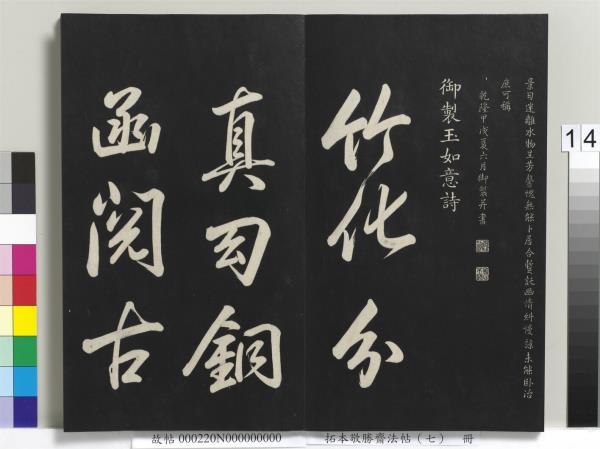 景自離水物芳馨愧無能卜居合暫託幽情糾縵未能臥治
庶可稱
乾隆甲戌夏六月御製并書
御製玉如意詩
竹化分
真幻銅
函閱古
14
故帖 000220N000000000 拓本敬勝齋法帖（七） 冊